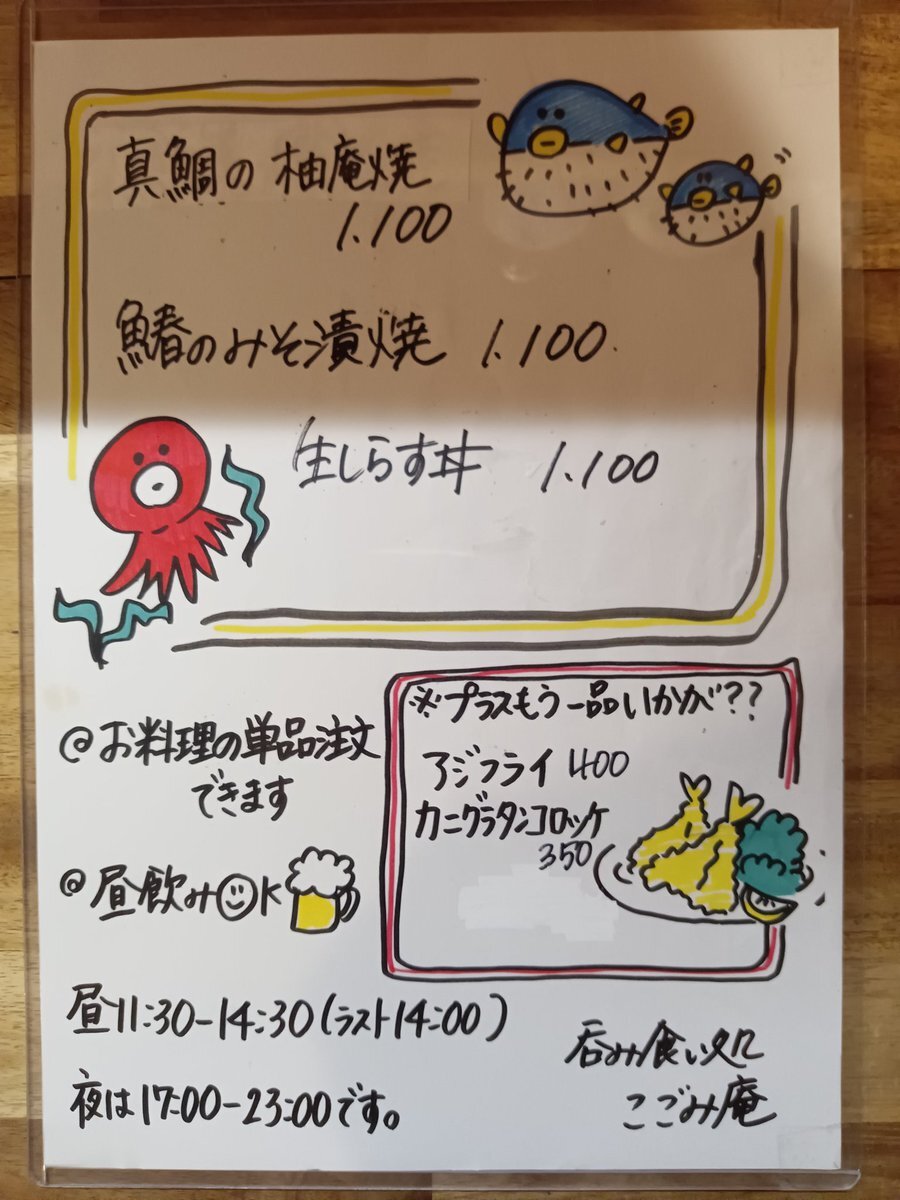 真鯛の柚庵焼
1.100
鰆のみそ漬焼 1.100.
生しらす丼 1.100
※プラスもう一品いかが??
アジフライ 400
カニグラタンコロッケ
350
@お料理の単品注文
できます
@昼飲みOK
昼11:30-14:30(ラスト14:00)
夜は17:00-23:00です。
呑み食い処
こごみ庵